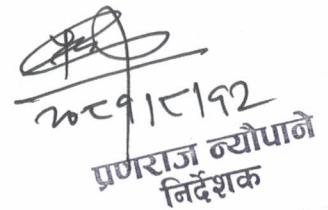 २०८१।८।१२
प्रणराज न्यौपाने
निर्देशक